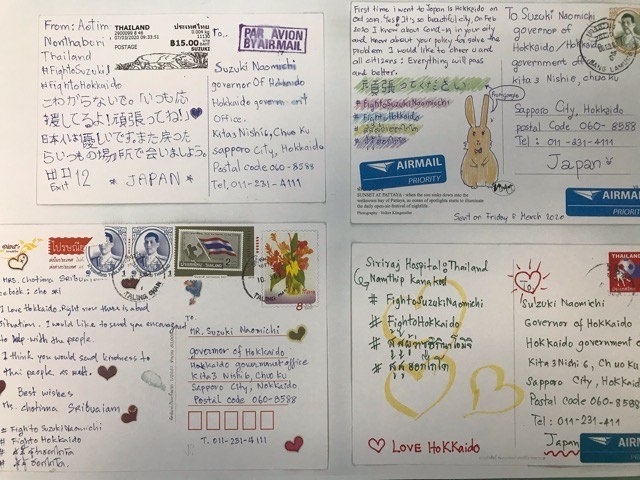 From: Aotim
Nonthaburi
Thailand
#FightoSuzuki
#FightoHokkaido
THAILAND
POSTAGE
฿15.00
07/03/2020 09:33:51
ประเทศไทย
PAR AVION
BY AIRMAIL
こわがらないで。「いつも応
援してるよ！頑張ってね」
日本人は優しいです。また戻った
らいつもの場所で会いましょう。
出口12
Exit
* JAPAN *
Suzuki Naomichi
governor Of Hokkaido
Hokkaido government
Office.
Kita3 Nishi6, Chuo Ku
Sapporo city, Hokkaido
Postal code 060-8588
Tel. 011-231-4111
First time I went to Japan is Hokkaido on
so beautiful city, on Feb
2020 I know about Covid-19 in your city
and know about your policy for solve the
problem I would like to cheer and
all citizens: Everything will pass
and better.
頑張ってください
#FightoSuzukiNaomichi
#FightoHokkaido
AIRMAIL
PRIORITY
SUNSET AT PATTAYA - when the sun sinks down into the
unknown bay of Pattaya, an ocean of spotlights starts to illuminate
the daily open-air-festival of nightlife.
Sent on Friday 6 March 2020
To Suzuki Naomichi
governor of
Hokkaido
Hokkaido
government office
kita3 Nishi6, chuo ku
Sapporo City, Hokkaido
postal code 060-8588
Tel: 011-231-4111
Japan
AIRMAIL
PRIORITY
ไปรษณีย์
Mrs. Chotima Sribuaiam
I love Hokkaido. Right now there is a bad
situation. I would like to send you encouraged
to help with the people.
I think you would send kindness to
thai people as well.
Best wishes
Mrs. Chotima Sribuaiam
# Fighto Suzuki Naomichi
# Fighto Hokkaido
TALING CHAN
To.
Mr. Suzuki Naomichi
governor of Hokkaido
Hokkaido government office
Kita3 Nishi6, Chuo Ku
Sapporo City, Hokkaido
Postal code 060-8588
T. 011-231-4111
Siriraj Hospital: Thailand
Namthip Kanakat
# FightoSuzukiNaomichi
# FightoHokkaido
# สู้สู้ฮอกไกโด
LOVE HOKKAIDO
THAILAND
To,
Suzuki Naomichi
Governor of Hokkaido
Hokkaido government of
Kita 3 Nishi 6, Chuo Ku
Sapporo City, Hokkaido
Postal code: 060-8588
Tel: 011-231-4111
Japan
AIRM
PRIORI